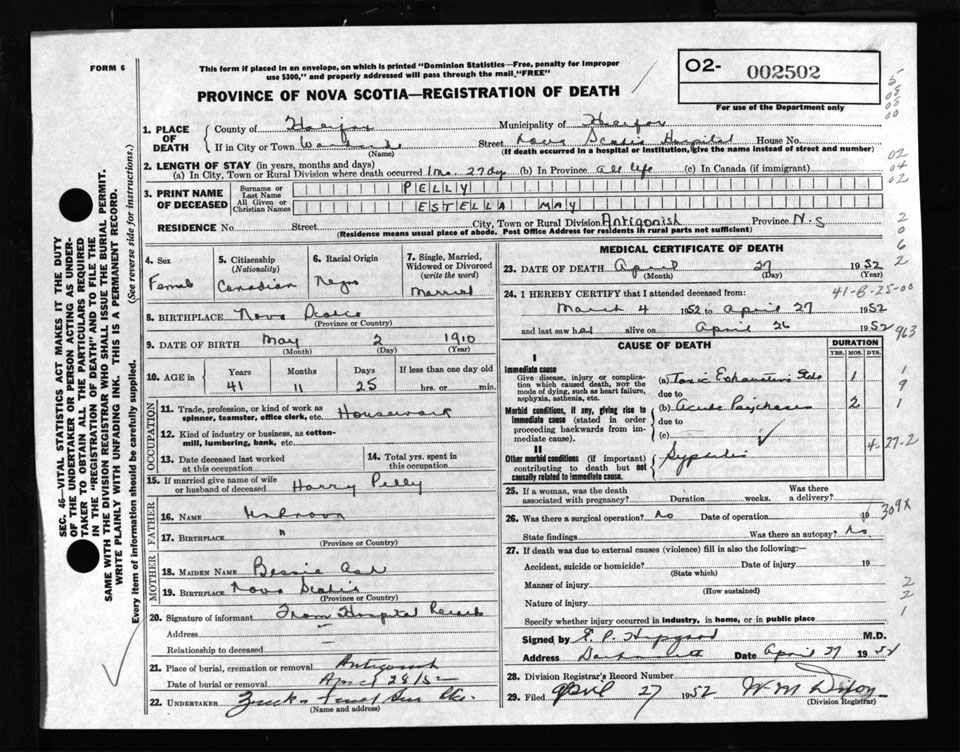 FORM 6
This form if placed in an envelope, on which is printed "Dominion Statistics—Free, penalty for improper
use $300," and properly addressed will pass through the mail "FREE"
PROVINCE OF NOVA SCOTIA—REGISTRATION OF DEATH
O2- 002502
For use of the Department only
1. PLACE OF DEATH
County of Halifax Municipality of Halifax
If in City or Town (Name) Street Nova Scotia Hospital House No.
(If death occurred in a hospital or institution, give the name instead of street and number)
2. LENGTH OF STAY (in years, months and days)
(a) In City, Town or Rural Division where death occurred 1 mo. 27 dys (b) In Province all life (c) In Canada (if immigrant)
3. PRINT NAME OF DECEASED
Surname or Last Name PELLY
All Given or Christian Names ESTELLA MAY
RESIDENCE No. Street City, Town or Rural Division Antigonish Province N.S
(Residence means usual place of abode. Post Office Address for residents in rural parts not sufficient)
4. Sex
Female
5. Citizenship
(Nationality)
Canadian
6. Racial Origin
Negro
7. Single, Married,
Widowed or Divorced
(write the word)
Married
8. BIRTHPLACE Nova Scotia
(Province or Country)
9. DATE OF BIRTH May 2 1910
(Month) (Day) (Year)
10. AGE in Years Months Days If less than one day old
41 11 25 hrs. or min.
OCCUPATION
11. Trade, profession, or kind of work as
spinner, teamster, office clerk, etc. Housework
12. Kind of industry or business, as cotton-
mill, lumbering, bank, etc.
13. Date deceased last worked
at this occupation
14. Total yrs. spent in
this occupation
15. If married give name of wife
or husband of deceased Harry Pelly
FATHER
16. NAME Unknown
17. BIRTHPLACE "
(Province or Country)
MOTHER
18. MAIDEN NAME Bessie Ash
19. BIRTHPLACE Nova Scotia
(Province or Country)
20. Signature of informant From Hospital Records
Address
Relationship to deceased
21. Place of burial, cremation or removal Antigonish
Date of burial or removal April 28/52
22. UNDERTAKER
(Name and address)
MEDICAL CERTIFICATE OF DEATH
23. DATE OF DEATH April 27 1952
(Month) (Day) (Year)
24. I HEREBY CERTIFY that I attended deceased from:
March 4 1952 to April 27 1952
and last saw her alive on April 26 1952
CAUSE OF DEATH
DURATION
YRS. MOS. DYS.
I
Immediate cause
Give disease, injury or complica-
tion which caused death, NOT the
mode of dying, such as heart failure,
asphyxia, asthenia, etc.
(a) Toxic Exhaustion State 1
due to
Morbid conditions, if any, giving rise to
immediate cause (stated in order
proceeding backwards from im-
mediate cause).
(b) Acute Psychosis 2
due to
(c)
II
Other morbid conditions (if important)
contributing to death but not
causally related to immediate cause.
Syphilis
25. If a woman, was the death
associated with pregnancy? Duration weeks. Was there
a delivery?
26. Was there a surgical operation? No Date of operation 19
State findings Was there an autopsy? No.
27. If death was due to external causes (violence) fill in also the following:—
Accident, suicide or homicide? Date of injury 19
(State which)
Manner of injury
(How sustained)
Nature of injury
Specify whether injury occurred in industry, in home, or in public place
Signed by M.D.
Address Dartmouth Date April 27 1952
28. Division Registrar's Record Number
29. Filed April 27 1952 W M
(Division Registrar)
SEC. 46—VITAL STATISTICS ACT MAKES IT THE DUTY
OF THE UNDERTAKER OR PERSON ACTING AS UNDER-
TAKER TO OBTAIN ALL THE PARTICULARS REQUIRED
IN THE "REGISTRATION OF DEATH" AND TO FILE THE
SAME WITH THE DIVISION REGISTRAR WHO SHALL ISSUE THE BURIAL PERMIT.
WRITE PLAINLY WITH UNFADING INK. THIS IS A PERMANENT RECORD.
Every item of information should be carefully supplied.
(See reverse side for instructions.)
41-8-25-00
963
4-27-2
309X